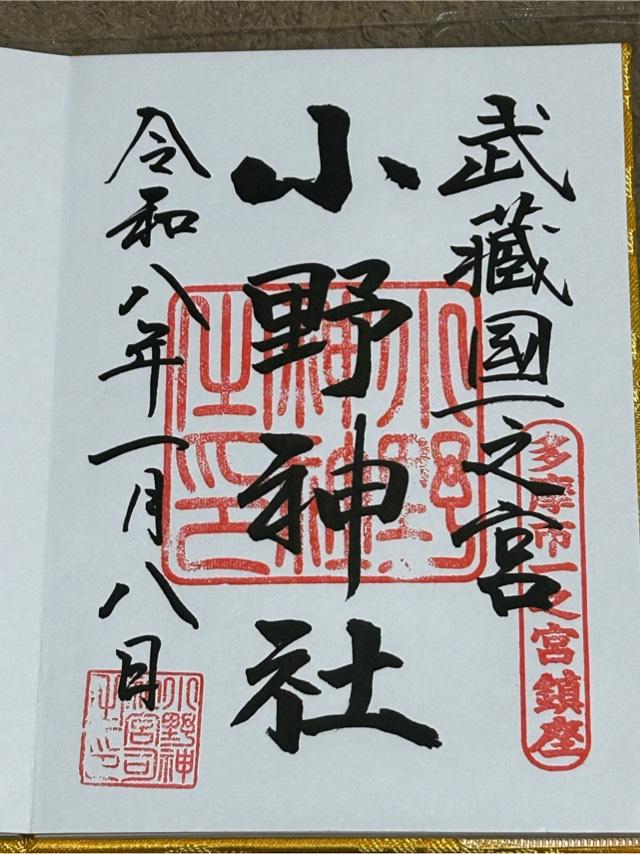 武藏國一之宮
多摩市一之宮鎮座
小野神社
令和八年一月八日
小野神
社宮司
之印